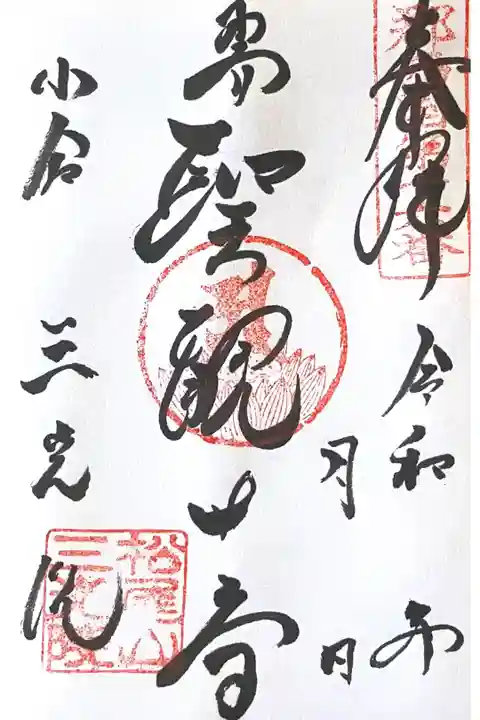 奉拝
令和 年
月 日
聖観世音
小倉 三光院
松尾山三光院